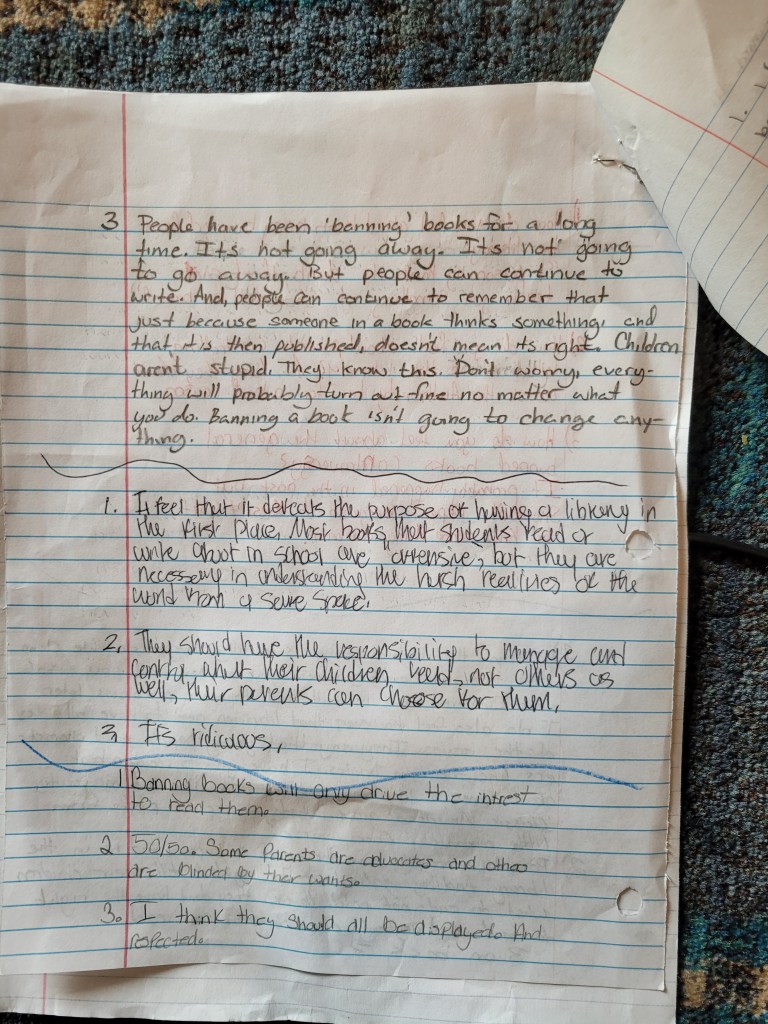 3 People have been 'banning' books for a long
time. Its not going away. Its not going
to go away. But people can continue to
write. And, people can continue to remember that
just because someone in a book thinks something, and
that it is then published, doesn't mean its right. Children
aren't stupid. They know this. Don't worry, every-
thing will probably turn out fine no matter what
you do. Banning a book isn't going to change any-
thing.
1. I feel that it defeats the purpose of having a library in
the first place. Most books that students read or
write about in school are "offensive", but they are
necessary in understanding the harsh realities of the
world from a safe space.
2. They should have the responsibility to manage and
control what their children read, not others as
well, their parents can choose for them.
3. It's ridiculous.
1 Banning books will only drive the intrest
to read them.
2 50/50. Some Parents are advocates and other
are blinded by their wants.
3. I think they should all be displayed. And
respected.